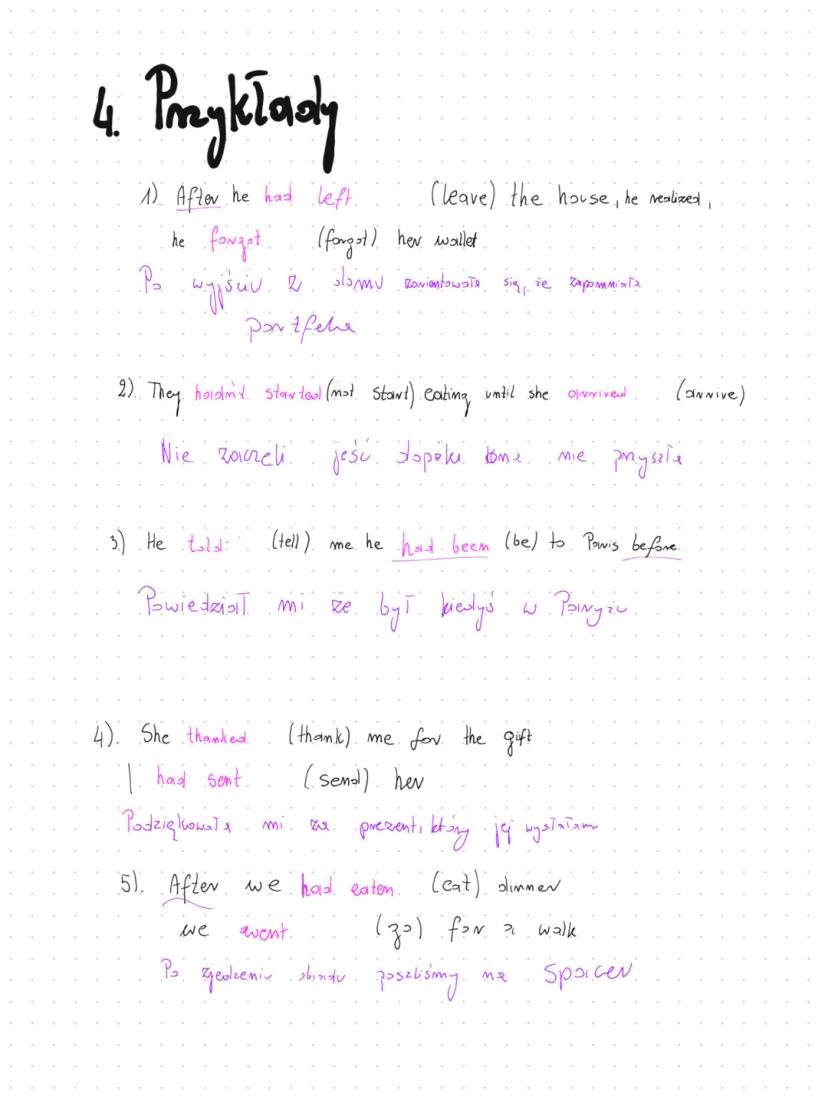 4. Przykłady
1) After he had left (leave) the house, he realized,
he forgot (forgot) her wallet
Po wyjściu z domu zorientowała się, że zapomniała
portfela
2). They hadn't started (not start) eating until she arrived (arrive)
Nie zaczeli jeść dopóki ona nie przyszła
3.) He told (tell) me he had been (be) to Paris before.
Powiedział mi że był kiedyś w Paryżu
4). She thanked (thank) me for the gift
I had sent (send) her
Podziękowała mi za prezent, który jej wysłałam
5). After we had eaten (eat) dinner
we went (go) for a walk
Po zjedzeniu obiadu poszliśmy na spacer